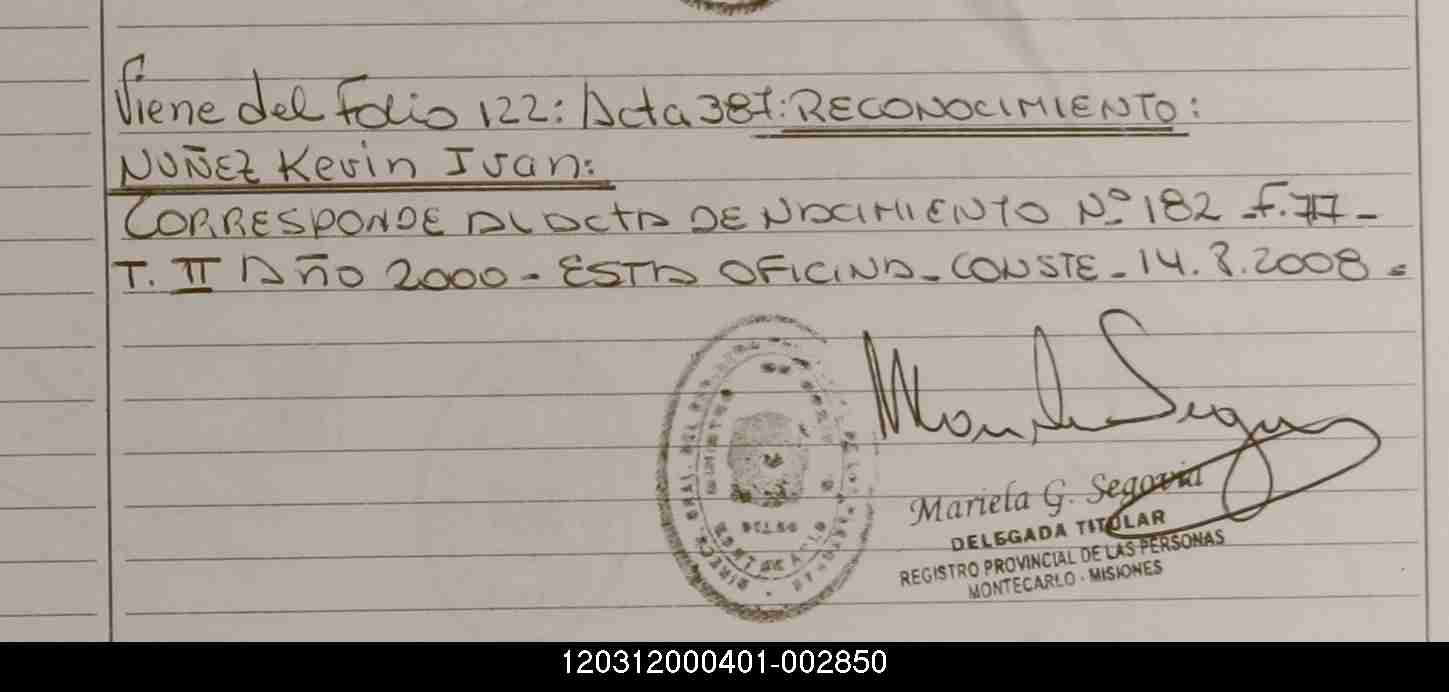 Viene del Folio 122: Acta 387: RECONOCIMIENTO:
NUÑEZ Kevin Ivan:
CORRESPONDE AL ACTA DE NACIMIENTO Nº 182 - F. 77 -
T. II AÑO 2000 - ESTA OFICINA - CONSTE - 14. 3. 2008 -
Mariela G. Segovia
DELEGADA TITULAR
REGISTRO PROVINCIAL DE LAS PERSONAS
MONTECARLO - MISIONES
120312000401-002850